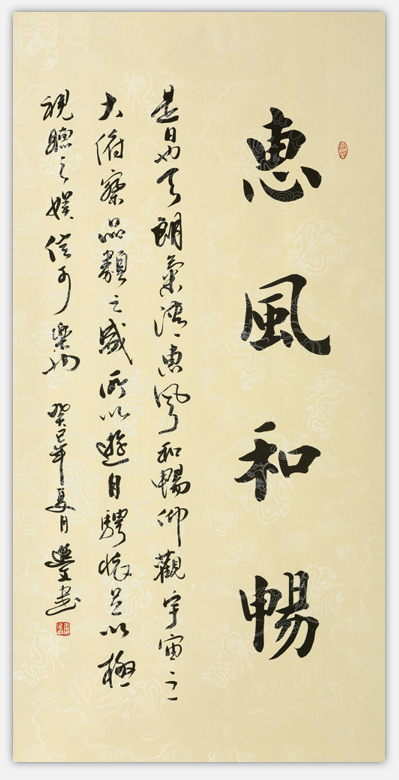 惠風和暢
是日也天朗氣清惠風和暢仰觀宇宙之
大俯察品類之盛所以遊目騁懷足以極
視聽之娛信可樂也 癸巳年夏月 書